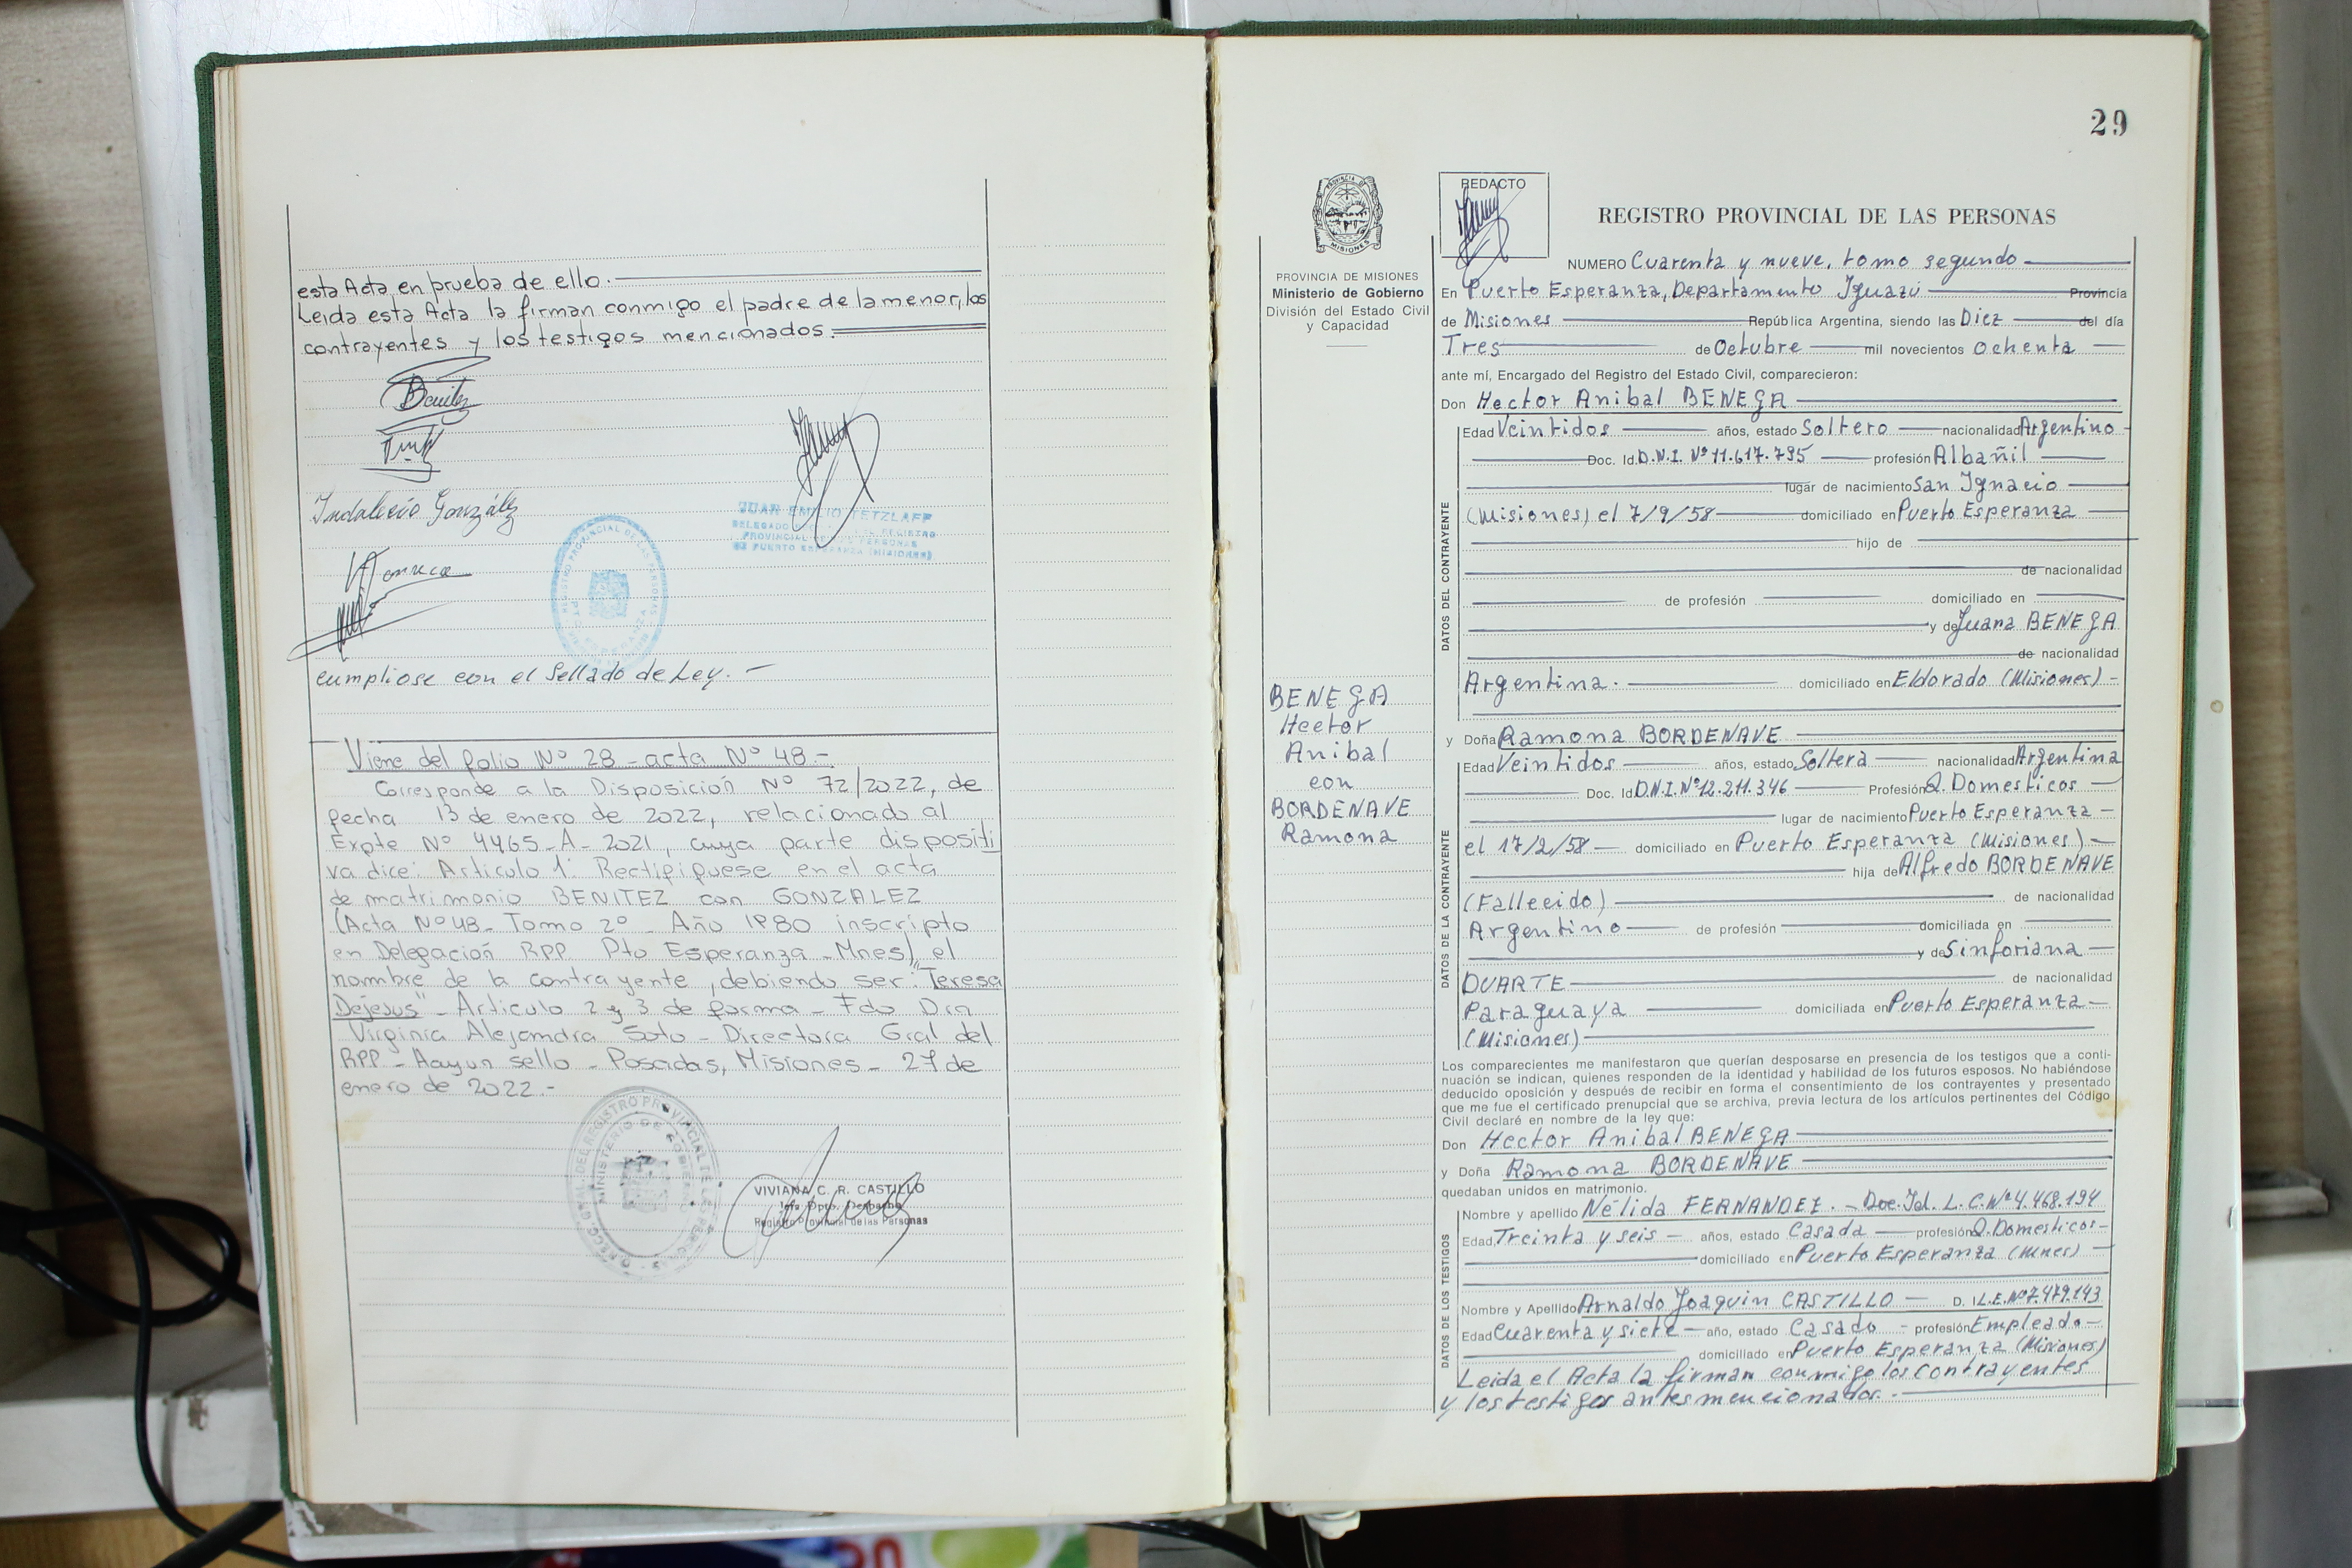 esta Acta en prueba de ello.
Leida esta Acta la firman conmigo el padre de la menor, los
contrayentes y los testigos mencionados.
Benitez
Indalecio González
JUAN EMILIO TETZLAFF
PROVINCIAL DE LAS PERSONAS
DE PUERTO ESPERANZA (MISIONES)
REGISTRO PROVINCIAL DE LAS PERSONAS
cumpliose con el Sellado de Ley. -
Viene del folio Nº 28 - acta Nº 48 -
Corresponde a la Disposición Nº 72/2022, de
fecha 13 de enero de 2022, relacionado al
Expte Nº 4465-A-2021, cuya parte dispositi
va dice: Articulo 1: Rectifiquese en el acta
de matrimonio BENITEZ con GONZALEZ
(Acta Nº 48 - Tomo 2º - Año 1980 inscripto
en Delegación RPP Pto Esperanza - Mnes), el
nombre de la contrayente, debiendo ser: "Teresa
Dejesus" - Articulo 2 y 3 de forma - Fdo Dra
Virginia Alejandra Soto - Directora Gral del
RPP - Hay un sello - Posadas, Misiones - 27 de
enero de 2022.-
MINISTERIO DE GOBIERNO
VIVIANA C. R. CASTILLO
Jefa Dpto. Despacho
Registro Provincial de las Personas
29
PROVINCIA DE MISIONES
Ministerio de Gobierno
División del Estado Civil
y Capacidad
BENEGA
Hector
Anibal
con
BORDENAVE
Ramona
REDACTO
REGISTRO PROVINCIAL DE LAS PERSONAS
NUMERO Cuarenta y nueve, tomo segundo
En Puerto Esperanza, Departamento Iguazú Provincia
de Misiones República Argentina, siendo las Diez del día
Tres de Octubre mil novecientos ochenta
ante mí, Encargado del Registro del Estado Civil, comparecieron:
Don Hector Anibal BENEGA
DATOS DEL CONTRAYENTE
Edad Veintidos años, estado Soltero nacionalidad Argentino
Doc. Id. D.N.I. Nº 11.617.795 profesión Albañil
lugar de nacimiento San Ignacio
(Misiones) el 7/9/58 domiciliado en Puerto Esperanza
hijo de
de nacionalidad
de profesión domiciliado en
y de Juana BENEGA
de nacionalidad
Argentina. domiciliado en Eldorado (Misiones) -
y Doña Ramona BORDENAVE
DATOS DE LA CONTRAYENTE
Edad Veintidos años, estado Soltera nacionalidad Argentina
Doc. Id. D.N.I. Nº 12.211.346 Profesión Q. Domesticos
lugar de nacimiento Puerto Esperanza
el 17/2/58 domiciliado en Puerto Esperanza (Misiones)
hija de Alfredo BORDENAVE
(Fallecido) de nacionalidad
Argentino de profesión domiciliada en
y de Sinforiana
DUARTE de nacionalidad
Paraguaya domiciliada en Puerto Esperanza
(Misiones)
Los comparecientes me manifestaron que querían desposarse en presencia de los testigos que a conti-
nuación se indican, quienes responden de la identidad y habilidad de los futuros esposos. No habiéndose
deducido oposición y después de recibir en forma el consentimiento de los contrayentes y presentado
que me fue el certificado prenupcial que se archiva, previa lectura de los artículos pertinentes del Código
Civil declaré en nombre de la ley que:
Don Hector Anibal BENEGA
y Doña Ramona BORDENAVE
quedaban unidos en matrimonio.
DATOS DE LOS TESTIGOS
Nombre y apellido Nélida FERNANDEZ. - Doc. Id. L.C. Nº 4.468.194
Edad Treinta y seis años, estado Casada profesión Q. Domesticos
domiciliado en Puerto Esperanza (Mnes)
Nombre y Apellido Arnaldo Joaquin CASTILLO D. I L.E. Nº 7.479.143
Edad Cuarenta y siete año, estado Casado profesión Empleado
domiciliado en Puerto Esperanza (Misiones)
Leida el Acta la firman conmigo los contrayentes
y los testigos antes mencionados.